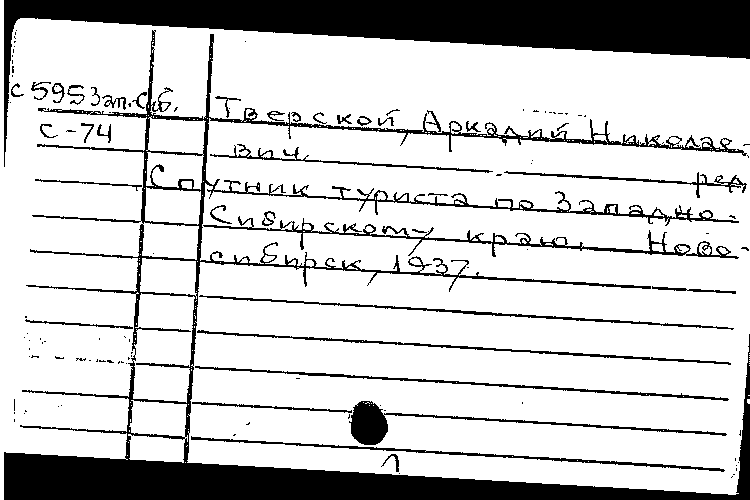 С595Зап.Сиб. Тверской, Аркадий Николае-
С-74 вич. ред
Спутник туриста по Западно-
Сибирскому краю. Ново-
сибирск, 1937.